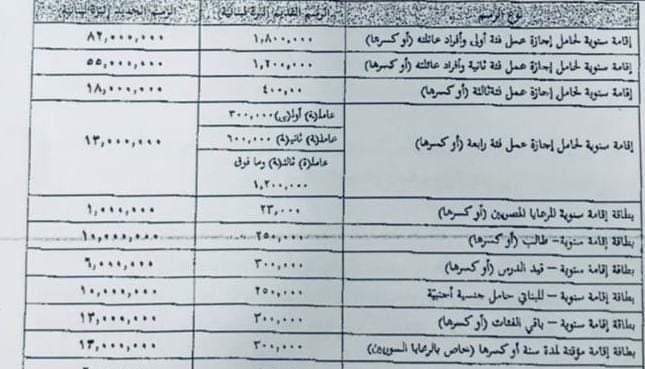 نوع الرسم الرسم القديم (ليرة لبنانية) الرسم الجديد (ليرة لبنانية)
إقامة سنوية لحامل إجازة عمل فئة أولى وأفراد عائلته (أو كسرها) ١,٨٠٠,٠٠٠ ٨٢,٠٠٠,٠٠٠
إقامة سنوية لحامل إجازة عمل فئة ثانية وأفراد عائلته (أو كسرها) ١,٢٠٠,٠٠٠ ٥٥,٠٠٠,٠٠٠
إقامة سنوية لحامل إجازة عمل فئة ثالثة (أو كسرها) ٤٠٠,٠٠ ١٨,٠٠٠,٠٠٠
إقامة سنوية لحامل إجازة عمل فئة رابعة (أو كسرها)
عامل(ة) أول(ى) ٣٠٠,٠٠٠
عامل(ة) ثاني(ة) ٦٠٠,٠٠٠
عامل(ة) ثالث(ة) وما فوق
١,٢٠٠,٠٠٠
١٣,٠٠٠,٠٠٠
بطاقة إقامة سنوية للرعايا المصريين (أو كسرها) ٢٣,٠٠٠ ١,٠٠٠,٠٠٠
بطاقة إقامة سنوية – طالب (أو كسرها) ٢٥٠,٠٠٠ ١٠,٠٠٠,٠٠٠
بطاقة إقامة سنوية – قيد الدرس (أو كسرها) ٣٠٠,٠٠٠ ,٠٠٠,٠٠٠
بطاقة إقامة سنوية – للبناني حامل جنسية أجنبية ٢٥٠,٠٠٠ ١٠,٠٠٠,٠٠٠
بطاقة إقامة سنوية – باقي الفئات (أو كسرها) ٣٠٠,٠٠٠ ١٣,٠٠٠,٠٠٠
بطاقة إقامة مؤقتة لمدة سنة أو كسرها (خاص بالرعايا السوريين) ٣٠٠,٠٠٠ ١٣,٠٠٠,٠٠٠